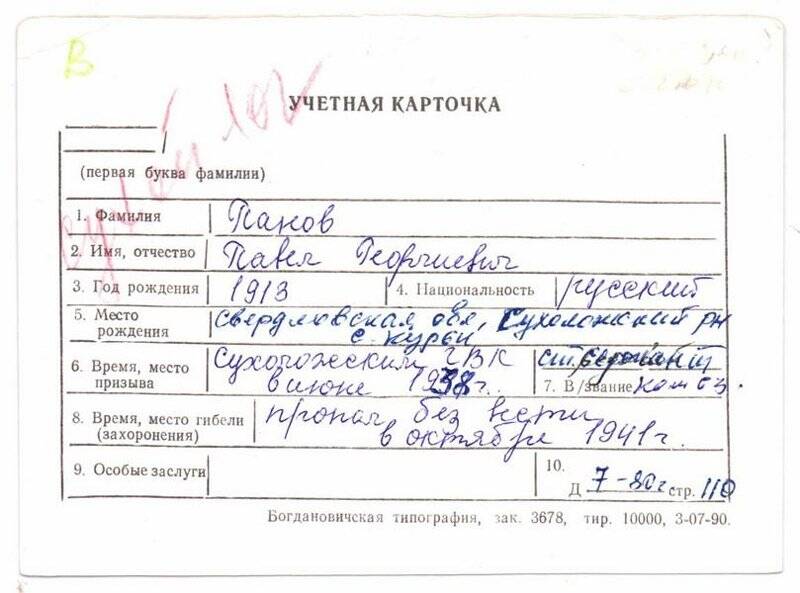 В
Сухой лог
УЧЕТНАЯ КАРТОЧКА
(первая буква фамилии)
1. Фамилия Панов
2. Имя, отчество Павел Георгиевич
3. Год рождения 1913 4. Национальность русский
5. Место рождения Свердловская обл, Сухоложский рн
с. Курьи
6. Время, место призыва Сухоложский ГВК
в июне 1938 г.
ст. сержант
7. В/звание ком оз.
8. Время, место гибели (захоронения) пропал без вести
в октябре 1941 г.
9. Особые заслуги
10.
Д 7-80г стр. 110
Богдановичская типография, зак. 3678, тир. 10000, 3-07-90.